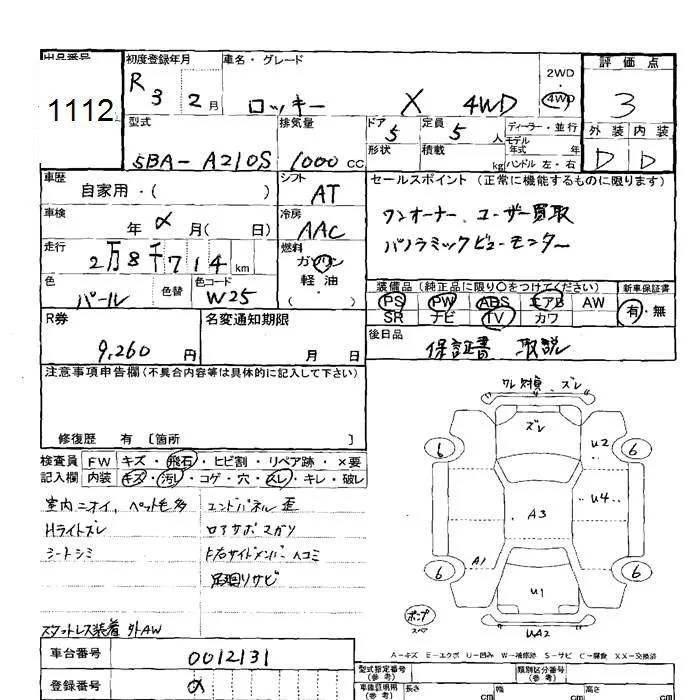 出品番号 初度登録年月 車名・グレード 2WD 評価点
1112 R3 2月 ロッキー X 4WD ・4WD 3
型式 排気量 ドア 5 定員 5人 ディーラー・並行 外装 内装
5BA-A210S 1000cc 形状 積載 kg モデル年式 年 ハンドル 左・右 D D
車歴 シフト セールスポイント(正常に機能するものに限ります)
自家用・( ) AT ワンオーナー、ユーザー買取
車検 年 月( 日) 冷房 AAC パノラミックビューモニター
走行 2万8千714km 燃料 ガソリン
軽油
・( )
色 パール 色替 色コード W25
装備品(純正品に限り○をつけてください) 新車保証書
PS PW ABS エアB AW 有・無
SR ナビ TV カワ
R券 9,260円 名変通知期限 月 日
後日品 保証書 取説
注意事項申告欄(不具合内容等は具体的に記入して下さい)
修復歴 有 〔箇所 〕
検査員 FW キズ・飛石・ヒビ割・リペア跡・×要
記入欄 内装 キズ・汚レ・コゲ・穴・スレ・キレ・破レ
室内ニオイ、ペット毛多 エンドパネル歪
Hライトズレ ロアサポマガリ
シートシミ 右サイドメンバーヘコミ
足廻りサビ
スタットレス装着 外AW
ズレ
ズレ
U2
6 6
U4
A3
A1
6 6
U1
ポンプ
スペア
UA2
A-キズ E-エクボ U-凹み W-補修跡 S-サビ C-腐食 XX-交換済
車台番号 0012131
登録番号
型式指定番号(参考) 類別区分番号(参考)
車検証明用(参考) 長さ cm 幅 cm 高さ cm